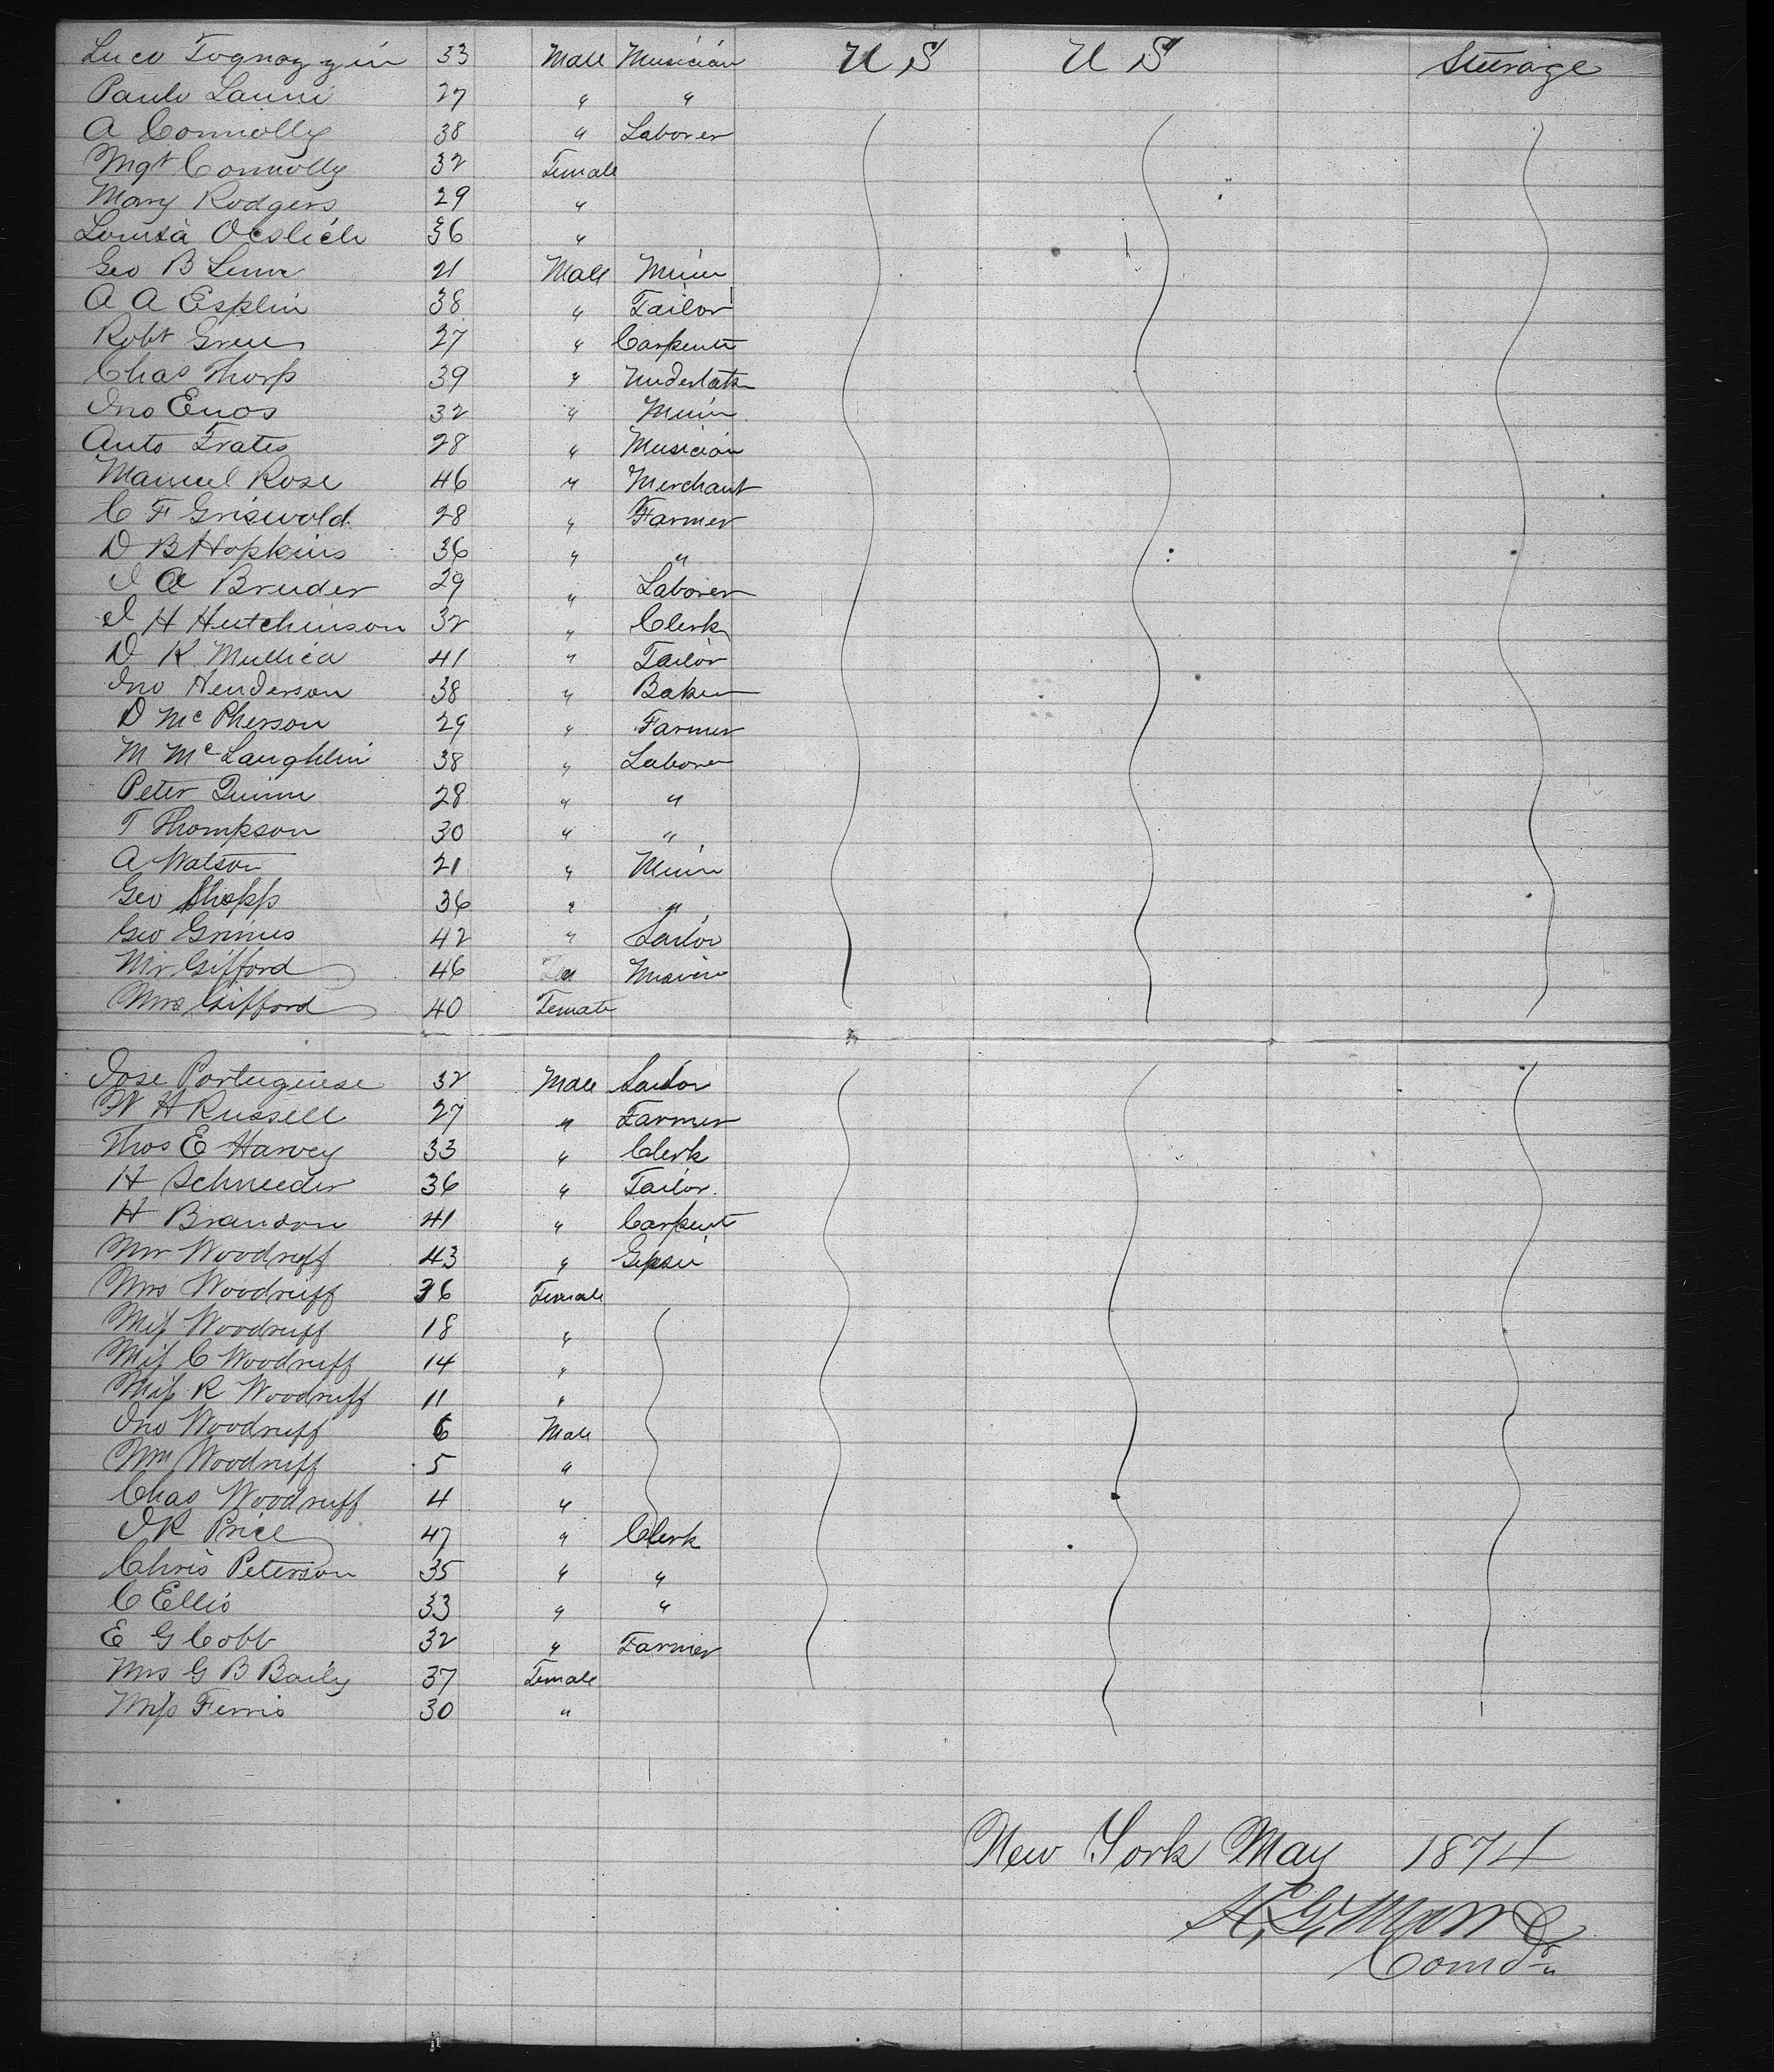 Luco Tognazzin 33 Male Musician U S U S Steerage
Paulo Launi 27 " "
A Connolly 38 " Laborer
Mgt Connolly 32 Female
Mary Rodgers 29 "
Louisa 36 "
Geo B 21 Male Miner
A A Esplin 38 " Tailor
Robt Green 27 " Carpenter
Chas Thorp 39 " Undertaker
Jno Enos 32 " Miner
Anto Frates 28 " Musician
Manuel Rose 46 " Merchant
C F Griswold 28 " Farmer
D B Hopkins 36 " "
J A Bruder 29 " Laborer
J H Hutchinson 32 " Clerk
D K Mullica 41 " Tailor
Jno Henderson 38 " Baker
D McPherson 29 " Farmer
M McLaughlin 38 " Laborer
Peter Quinn 28 " "
T Thompson 30 " "
A Watson 21 " Miner
Geo Shopp 36 " "
Geo Grimes 42 " Sailor
Mr Gifford 46
Mrs Gifford 40 Female
Jose Portuguese 32 Male Sailor
W H Russell 27 " Farmer
Thos E Harvey 33 " Clerk
H Schneeder 36 " Tailor
H Brandon 41 " Carpent
Mr Woodruff 43 " Gipsie
Mrs Woodruff 36 Female
Miss Woodruff 18 "
Miss C Woodruff 14 "
Miss R Woodruff 11 "
Jno Woodruff 6 Male
Wm Woodruff 5 "
Chas Woodruff 4 "
J R Price 47 " Clerk
Chris Peterson 35 " "
C Ellis 33 " "
E G Cobb 32 " Farmer
Mrs G B Baily 37 Female
Miss Ferris 30 "
New York May 1874
A. G.
Comdr